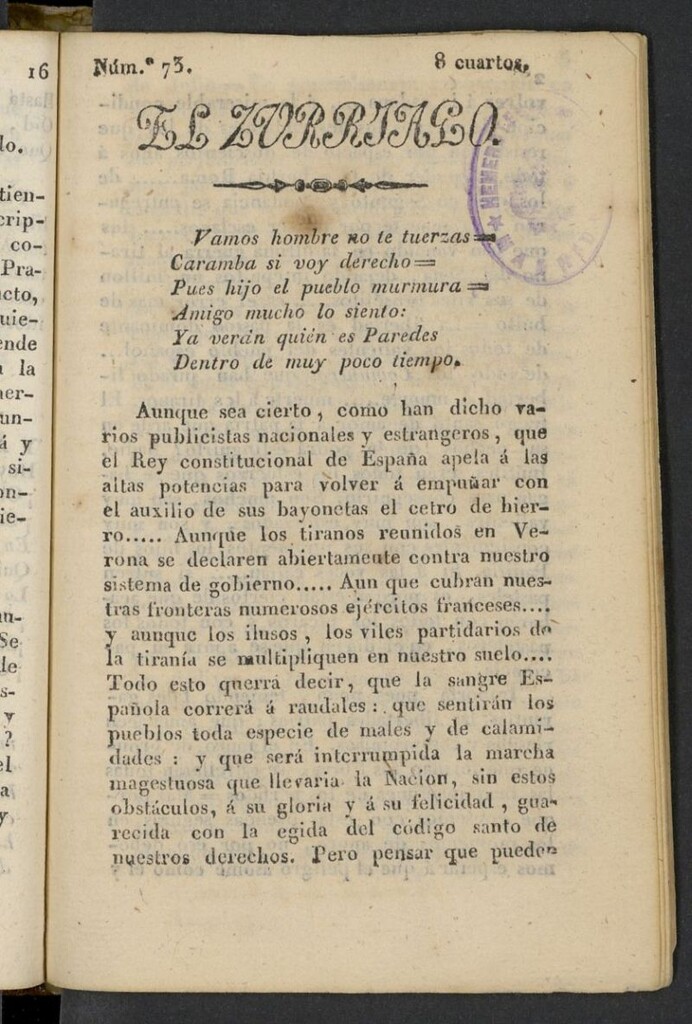 16
lo.
tien-
crip-
co-
Pra-
cto,
uie-
ende
la
ner-
un-
á y
si-
on-
ie-
un-
Se
de
s-
y
?
el
a
y
Núm.º 73.
8 cuartos.
EL ZURRIAGO.
HEMER
Vamos hombre no te tuerzas=
Caramba si voy derecho=
Pues hijo el pueblo murmura=
Amigo mucho lo siento:
Ya verán quién es Paredes
Dentro de muy poco tiempo.
Aunque sea cierto, como han dicho va-
rios publicistas nacionales y estrangeros, que
el Rey constitucional de España apela á las
altas potencias para volver á empuñar con
el auxilio de sus bayonetas el cetro de hier-
ro..... Aunque los tiranos reunidos en Ve-
rona se declaren abiertamente contra nuestro
sistema de gobierno..... Aun que cubran nues-
tras fronteras numerosos ejércitos franceses....
y aunque los ilusos, los viles partidarios de
la tiranía se multipliquen en nuestro suelo....
Todo esto querrá decir, que la sangre Es-
pañola correrá á raudales: que sentirán los
pueblos toda especie de males y de calami-
dades: y que será interrumpida la marcha
magestuosa que llevaria la Nacion, sin estos
obstáculos, á su gloria y á su felicidad, gua-
recida con la egida del código santo de
nuestros derechos. Pero pensar que pueden